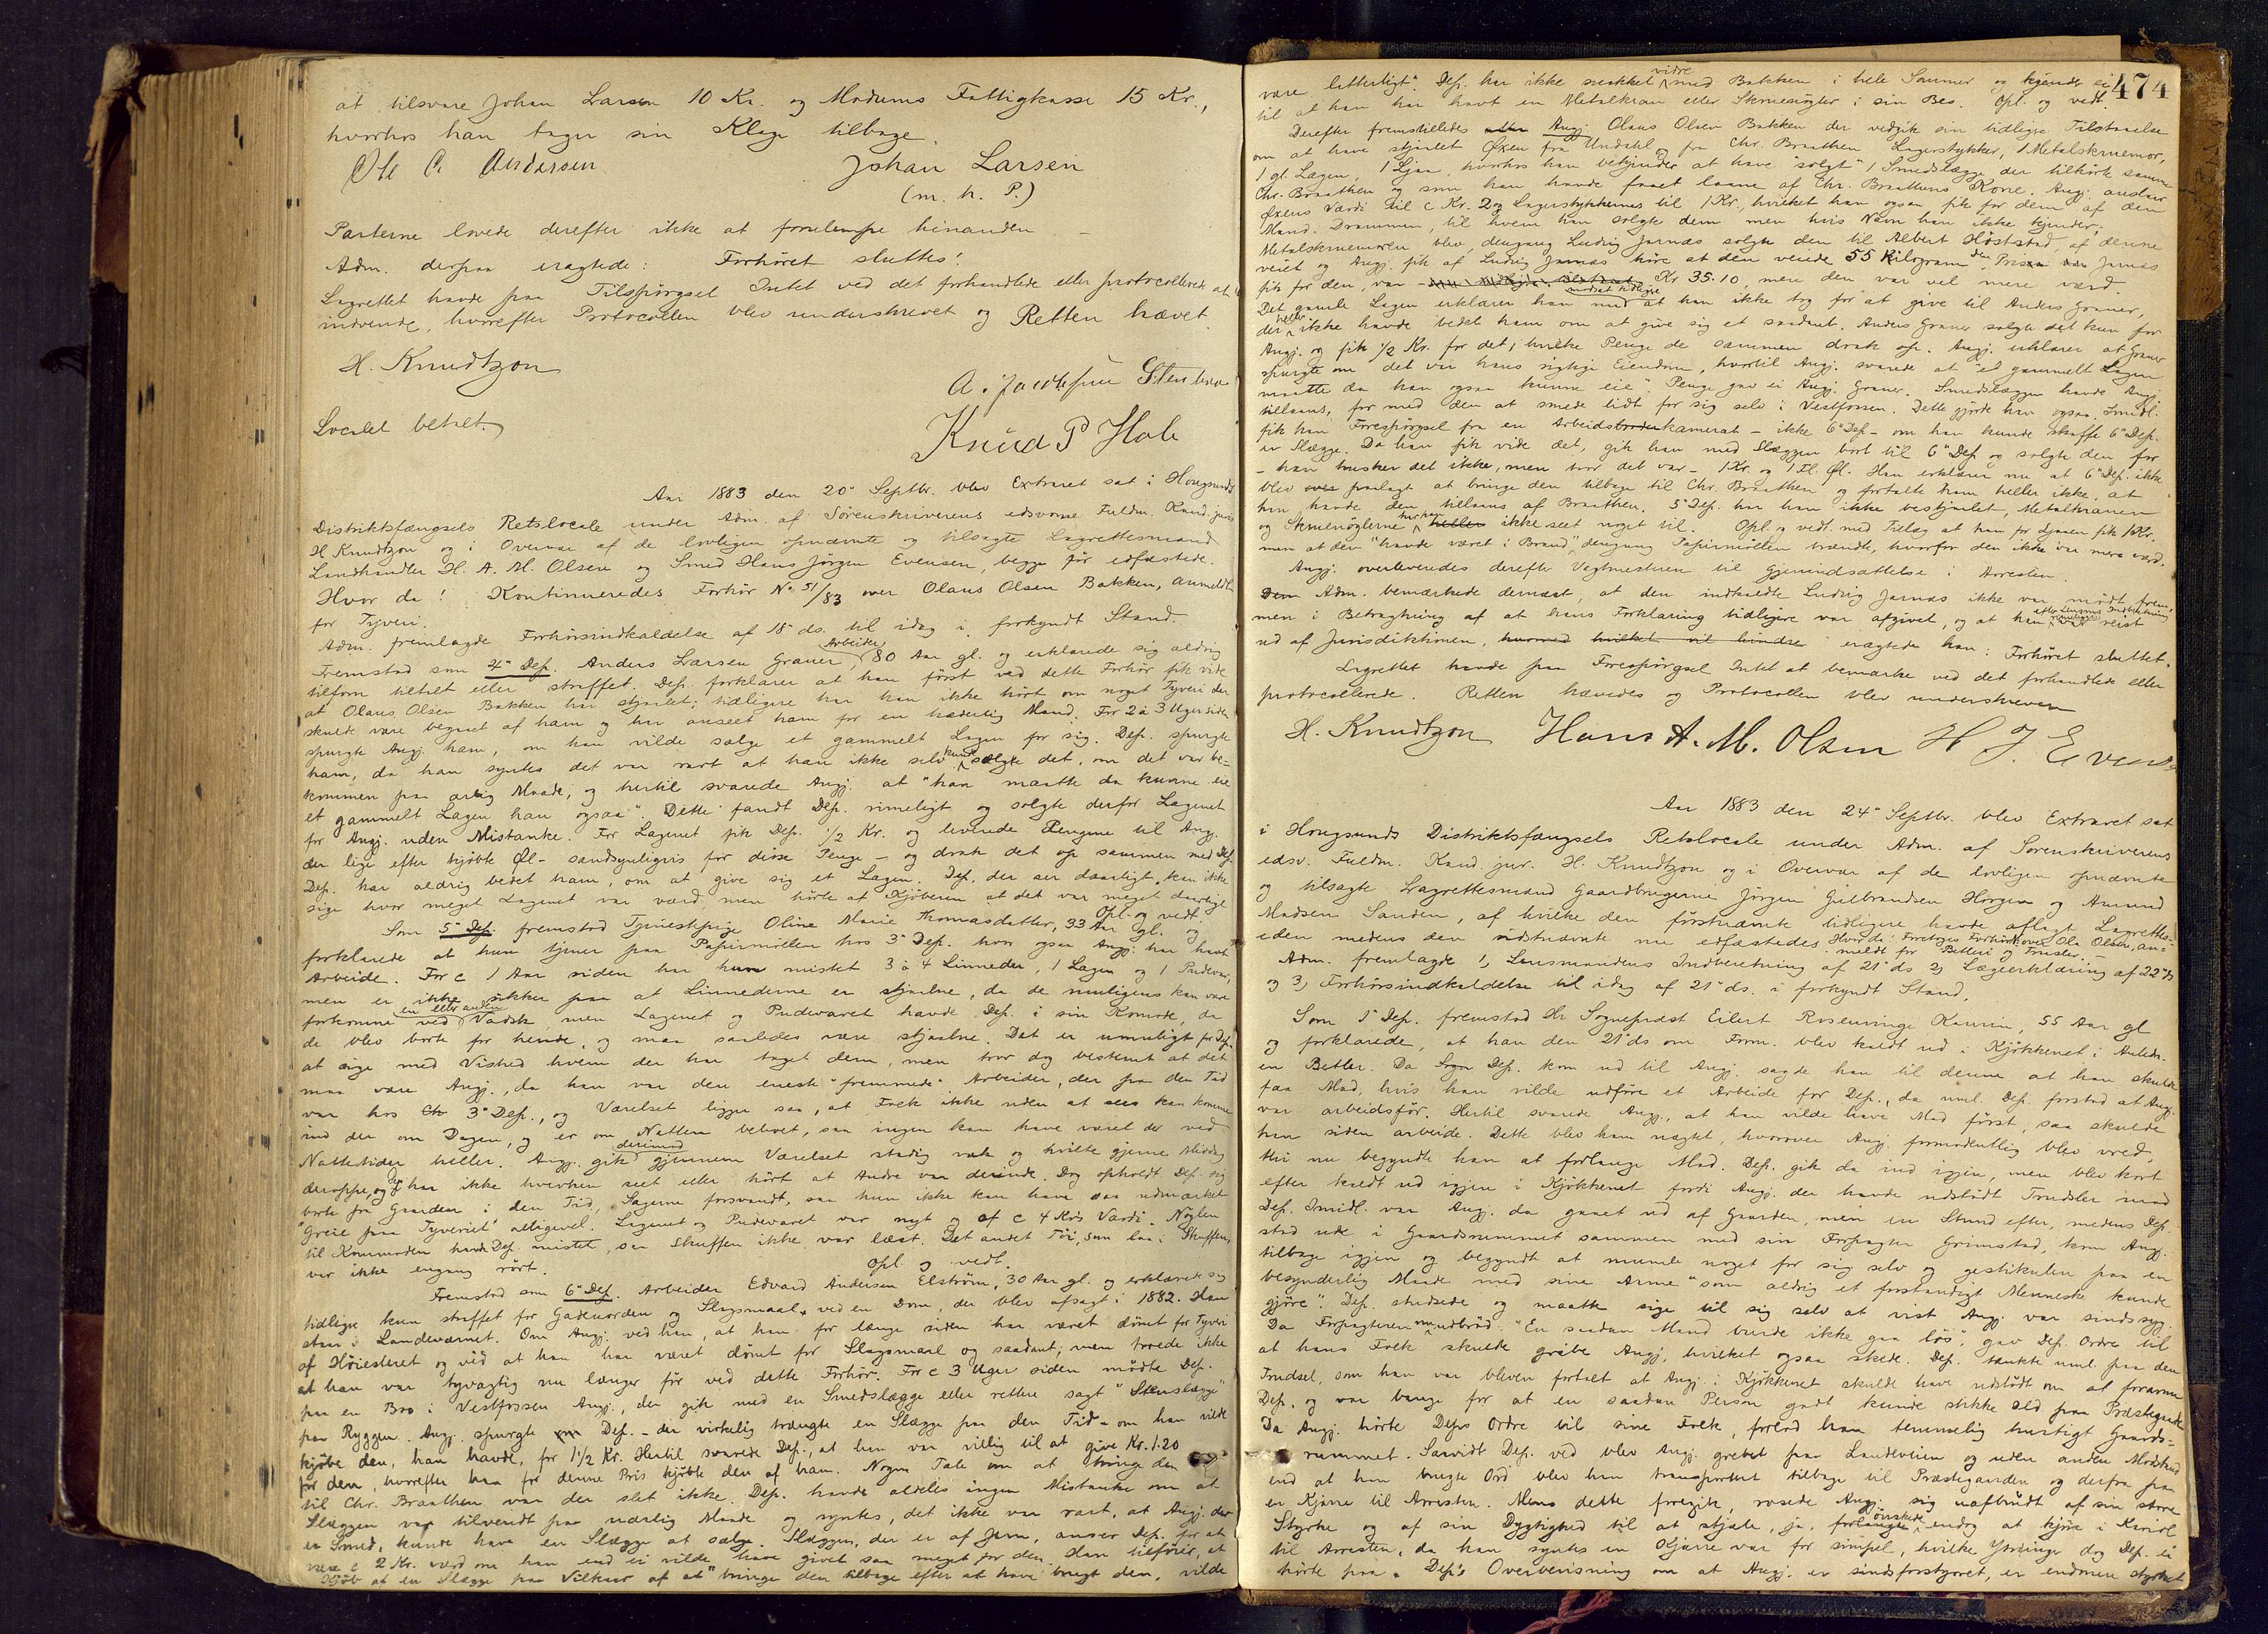 at tilsvare Johan Larsen 10 Kr. og Modums Fattigkasse 15 Kr.,
hvorhos han tager sin Klage tilbage
Ole C. Andersen Johan Larsen
(m. h. P.)
Parterne lovede derefter ikke at forulempe hinanden –
Adm. derpaa eragtede: Forhöret sluttes!
Lagrettet havde paa Tilspörgsel Intet ved det forhandlede eller protocollerede at
indvende, hvorefter Protocollen blev underskrevet og Retten hævet.
H. Knudtzon
A. Jacobsen
Localet betalt.
Knud P Hole
Aar 1883 den 20de Septbr. blev Extraret sat i Hougsunds
Distriktsfængsels Retslocale under Adm. af Sörenskriverens edsvorne Fuldm. Kand. juris
H Knudtzon og i Overvær af de lovligen opnævnte og tilsagte Lagrettesmænd
Landhandler H. A. M. Olsen og Smed Hans Jörgen Evensen, begge för edfæstede.
Hvor da! Kontinueredes Forhör No 51/83 over Olaus Olsen Bakken, anmeldt
for Tyveri.
Adm. fremlagde Forhörsindkaldelse af 18de ds. til idag i forkyndt Stand.
Fremstod som 4de Dep. Anders Larsen Graner, Arbeider, 80 Aar gl. og erklærede sig aldrig
tilforn tiltalt eller straffet. Dep. forklarer at han först ved dette Forhör fik vide
at Olaus Olsen Bakken har stjaalet; tidligere har han ikke hört om noget Tyveri der
skulde være begaaet af ham og har anseet ham for en hæderlig Mand. For 2 à 3 Uger siden
spurgte Angj. ham, om han vilde sælge et gammelt Lagen for sig. Dep. spurgte
ham, da han syntes det var rart at han ikke selv kunde sælge det, om det var be-
kommen paa ærlig Maade, og hertil svarede Angj. at "han maatte da kunne eie
et gammelt Lagen han ogsaa". Dette fandt Dep. rimeligt og solgte derfor Lagenet
for Angj. uden Mistanke. For Lagenet fik Dep. 1/2 Kr. og leverede Pengene til Angj.
der lige efter kjöbte Öl – sandsynligvis for disse Penge – og drak det op sammen med Dep.
Dep. har aldrig bedet ham, om at give sig et Lagen. Dep. der ser daarligt, kan ikke
sige hvor meget Lagenet var værd, men hörte af Kjöberen at det var meget daarligt
Opl. og vedt.
Som 5te Dep. fremstod Tjenestepige Oline Marie Thomasdatter, 33 Aar gl. og
forklarede at hun tjener paa Papirmöllen hos 3de Dep. hvor ogsaa Angj. har havt
Arbeide. For c 1 Aar siden har hun mistet 3 à 4 Linneder, 1 Lagen og 1 Pudevar,
men er ikke sikker paa at Linnederne er stjaalne, da de muligens kan være
forkomne ved en eller anden Vadsk, men Lagenet og Pudevaret havde Dep. i sin Komode, da
de blev borte for hende, og maa saaledes være stjaalne. Det er umuligt for Dep.
at sige med Vished hvem der har taget dem, men tror dog bestemt at det
maa være Angj., da han var den eneste "fremmede" Arbeider, der paa den Tid
var hos 3de Dep., og Værelset ligger saa, at Folk ikke uden at sees kan komme
ind der om Dagen, og er om Natten beboet, saa ingen kan have været der ved
Nattetider heller. Angj. gik derimod gjennem Værelset stadig væk og hvilte gjerne Middag
deroppe, og Dep har ikke hverken seet eller hört at Andre var derinde. Dog opholdt Dep. sig
borte fra Gaarden i den Tid, Sagerne forsvandt, saa hun ikke kan have saa udmærket
"Greie paa Tyveriet" alligevel. Lagenet og Pudevaret var nyt og af c 4 Krs Værdi. Nöglen
til Kommoden havde Dep. mistet, saa Skuffen ikke var læst. Det andet Töi, som laa i Skuffen,
var ikke engang rört. Opl. og vedt.
Fremstod som 6te Dep. Arbeider Edvard Andersen Elström, 30 Aar gl. og erklærede sig
tidligere kun straffet for Gadeuorden og Slagsmaal, ved en Dom, der blev afsagt i 1882. Han
staar i Landeværnet. Om Angj. ved han, at han for længe siden har været dömt for Tyveri
af Höiesteret og ved at han har været dömt for Slagsmaal og saadant; men troede ikke
at han var tyvagtig nu længer för ved dette Forhör. For c 3 Uger siden mödte Dep.
paa en Bro i Vestfossen Angj., der gik med en Smedslægge eller rettere sagt "Stenslægge"
paa Ryggen. Angj. spurgte Dep. – der virkelig trængte en Slægge paa den Tid – om han vilde
kjöbe den, han havde, for 1 1/2 Kr. Hertil svarede Dep., at han var villig til at give Kr. 1.20
for den, hvorefter han for denne Pris kjöbte den af ham. Nogen Tale om at bringe den
til Chr. Braathen var der slet ikke. Dep. havde aldeles ingen Mistanke om at
Slæggen var tilvendt paa uærlig Maade og syntes, det ikke var rart, at Angj. der
er Smed, kunde have en Slægge at sælge. Slæggen, der er af Jern, anser Dep. for at
være c 2 Kr. værd om han end ei vilde have givet saa meget for den. Han tilföier, at
Kjöb af en Slægge paa Vilkaar af at "bringe den tilbage efter at have brugt den, vilde
474
være latterligt". Dep. har ikke snakket vidre med Bakken i hele Sommer og kjender ei
til at han har havt en Metalkran eller Skruenögler i sin Bes. Opl. og vedt.
Derefter fremstilledes Angj. Olaus Olsen Bakken der vedgik sin tidligere Tilstaaelse
om at have stjaalet Öxen fra Undahl og fra Chr. Braathen Lagerstykker, 1 Metalskruemor,
1 gl. Lagen, 1 Ljaa, hvorhos han bekjender at have "solgt" 1 Smedslægge der tilhörte samme
Chr. Braathen og som han havde faaet laane af Chr. Braathens Kone. Angj. ansaar
Öxens Værdi til c Kr. 2 og Lagerstykkernes til 1 Kr., hvilket han ogsaa fik for dem af den
Mand. Drammen, til hvem han solgte dem, men hvis Navn han ikke kjender.
Metalskruemoren blev, dengang Ludvig Jarnæs solgte den til Albert Höststad, af denne
veiet og Angj. fik af Ludvig Jarnæs höre at den veiede 55 Kilogram, den Pris Jarnæs
fik for den, var Kr 35.10, men den var vel mere værd.
Det gamle Lagen erklærer han modsat tidligere at han ikke tog for at give til Anders Graner,
der heller ikke havde bedet ham om at give sig et saadant. Anders Graner solgte det kun for
Angj. og fik 1/2 Kr. for det, hvilke Penge de sammen drak op. Angj. erklærer at Graner
spurgte om det var hans rigtige Eiendom, hvortil Angj. svarede at "et gammelt Lagen
maatte da han ogsaa kunne eie". Penge gav ei Angj. Graner. Smedslæggen havde Angj.
tillaans, for med den at smede lidt for sig selv i Vestfossen. Dette gjorde han ogsaa. Imidl.
fik han Forespörgsel fra en Arbeidskamerat – ikke 6te Dep – om han kunde skaffe 6te Dep.
en Slægge. Da han fik vide det, gik han med Slæggen bort til 6te Dep og solgte den for
– han husker det ikke, men tror det var – 1 Kr. og 1 Fl. Öl. Han erklærer nu at 6te Dep. ikke
blev paalagt at bringe den tilbage til Chr. Braathen og fortalte ham heller ikke, at
han havde den tillaans af Braathen. 5te Dep. har han ikke bestjaalet, Metalkranen
og Skruenöglerne har han ikke seet noget til. Opl. og vedt. med Tillæg at han for Ljaaen fik 1 Kr.,
men at den "havde været i Brand", dengang Papirmöllen brændte, hvorfor den ikke var mere værd.
Angj. overleveredes derefter Vagtmesteren til Gjenindsættelse i Arresten.
Adm. bemærkede dernæst, at den indkaldte Ludvig Jarnæs ikke var mödt frem,
men i Betragtning af at hans Forklaring tidligere var afgivet, og at han efter Lensmandens Indberetning rimeligvis var reist
ud af Jurisdiktionen, eragtede han: Forhöret sluttet.
Lagrettet havde paa Forespörgsel Intet at bemærke ved det forhandlede eller
protocollerede. Retten hævedes og Protocollen blev underskreven
H. Knudtzon Hans A. M. Olsen H J. Evensen
Aar 1883 den 24de Septbr. blev Extraret sat
i Hougsunds Distriktsfængsels Retslocale under Adm. af Sorenskriverens
edsv. Fuldm. Kand. jur. H. Knudtzon og i Overvær af de lovligen opnævnte
og tilsagte Lagrettesmænd Gaardbrugerne Jörgen Gulbrandsen Horgen og Amund
Madsen Sanden, af hvilke den förstnævnte tidligere havde aflagt Lagrettes-
eden medens den sidstnævnte nu edfæstedes Hvor da: Foretoges Forhör over Ole Olsen, an-
meldt for Betleri og Trusler. –
Adm. fremlagde 1, Lensmandens Indberetning af 21de ds 2, Lægeerklæring af 22de ds
og 3, Forhörsindkaldelse til idag af 21de ds. i forkyndt Stand.
Som 1ste Dep. fremstod Hr Sognepræst Eilert Rosenvinge Kaurin, 55 Aar gl
og forklarede, at han den 21de ds om Form. blev kaldt ud i Kjökkenet i Anledn.
en Betler. Da Dep. kom ud til Angj. sagde han til denne at han skulde
faa Mad, hvis han vilde udföre et Arbeide for Dep., da nml. Dep. forstod at Angj.
var arbeidsför. Hertil svarede Angj., at han vilde have Mad först, saa skulde
han siden arbeide. Dette blev ham nægtet, hvorover Angj. formodentlig blev vred,
thi nu begyndte han at forlange Mad. Dep. gik da ind igjen, men blev kort
efter kaldt ud igjen i Kjökkenet fordi Angj. der havde udstödt Trudsler mod
Dep. Imidl. var Angj. da gaaet ud af Gaarden, men en Stund efter, medens Dep.
stod ude i Gaardsrummet sammen med sin Forpagter Grimstad, kom Angj.
tilbage igjen og begyndte at mumle noget for sig selv og gestikulere paa en
besynderlig Maade med sine Arme "som aldrig et forstandigt Menneske kunde
gjöre". Dep. studsede og maatte sige til sig selv at vist Angj. var sindssyg.
Da Forpagteren nu udbröd: "En saadan Mand burde ikke gaa lös", gav Dep. Ordre til
at hans Folk skulde gribe Angj., hvilket ogsaa skede. Dep. tænkte nml. paa den
Trudsel, som han var bleven fortalt at Angj. i Kjökkenet skulde have udstödt om at forarme
Dep. og var bange for at en saadan Person godt kunde stikke Ild paa Præstegaarden
Da Angj. hörte Deps Ordre til sine Folk, forlod han temmelig hurtigt Gaards-
rummet. Saavidt Dep. ved blev Angj. grebet paa Landeveien og uden anden Modstand
end at han brugte Ord blev han transporteret tilbage til Præstegaarden og derfra paa
en Kjærre til Arresten. Mens dette foregik, roste Angj. sig uafbrudt af sin store
Styrke og af sin Dygtighed til at stjæle, ja, önskede endog at kjöre i Kariol
til Arresten, da han syntes en Kjærre var for simpel, hvilke Ytringer dog Dep. ei
hörte paa. Dep's Overbevisning om at Angj. er sindsforstyrret, er endmere styrket